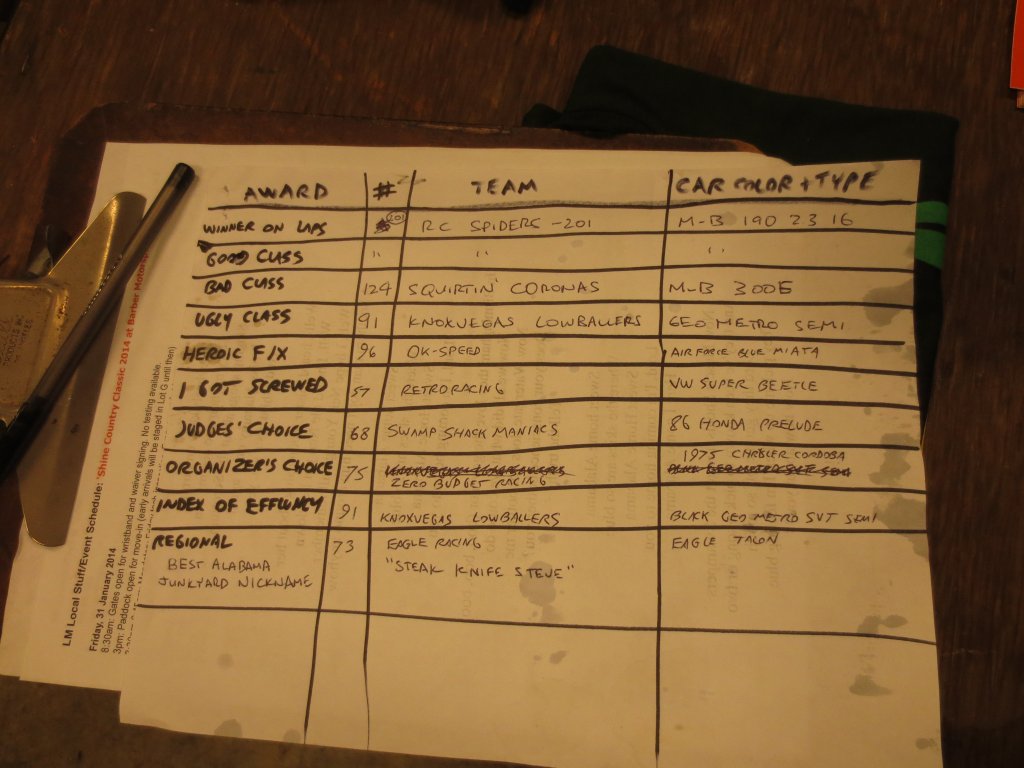 AWARD # TEAM CAR COLOR + TYPE
WINNER ON LAPS 201 RC SPIDERS -201 M-B 190 2 3 16
GOOD CLASS " " "
BAD CLASS 124 SQUIRTIN' CORONAS M-B 300E
UGLY CLASS 91 KNOXVEGAS LOWBALLERS GEO METRO SEMI
HEROIC F/X 96 OK-SPEED AIR FORCE BLUE MIATA
I GOT SCREWED 57 RETRORACING VW SUPER BEETLE
JUDGES' CHOICE 68 SWAMP SHACK MANIACS 86 HONDA PRELUDE
ORGANIZER'S CHOICE 75 KNOXVEGAS LOWBALLERS 1975 CHRSLER CORDOBA
ZERO BUDGET RACING BLACK GEO METRO SVT SEMI
INDEX OF EFFLUNCY 91 KNOXVEGAS LOWBALLERS BLACK GEO METRO SVT SEMI
REGIONAL 73 EAGLE RACING EAGLE TALON
BEST ALABAMA "STEAK KNIFE STEVE"
JUNKYARD NICKNAME
LM Local Stuff/Event Schedule: 'Shine Country Classic 2014 at Barber Motorsp
Friday, 31 January 2014
8:30am: Gates open for wristband and waiver signing. No testing available
3pm: Paddock open for move-in (early arrivals will be staged in Lot G until then)